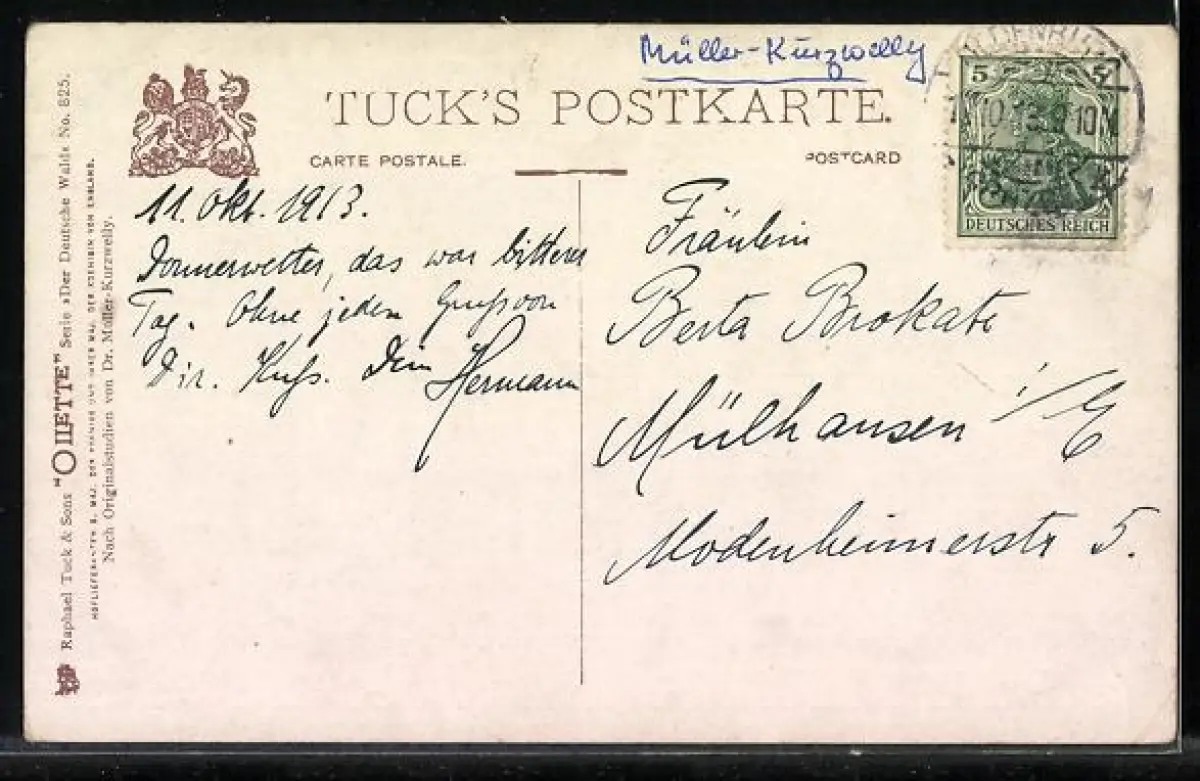 Müller-Kurzwelly
TUCK'S POSTKARTE.
CARTE POSTALE.
POSTCARD
5
5
DEUTSCHES REICH
11. Okt. 1913.
Donnerwetter, das war bitterer
Tag. Ohne jeden Gruß von
Dir. Kuß. Dein Hermann
Fräulein
Berta Brokate
Mülhausen i/E
Modenheimerstr 5.
Raphael Tuck & Sons "OILETTE" Serie »Der Deutsche Wald« No. 825.
HOFLIEFERANTEN S. MAJ. DER KOENIGS UND IHRER MAJ. DER KOENIGIN VON ENGLAND.
Nach Originalstudien von Dr. Müller-Kurzwelly.